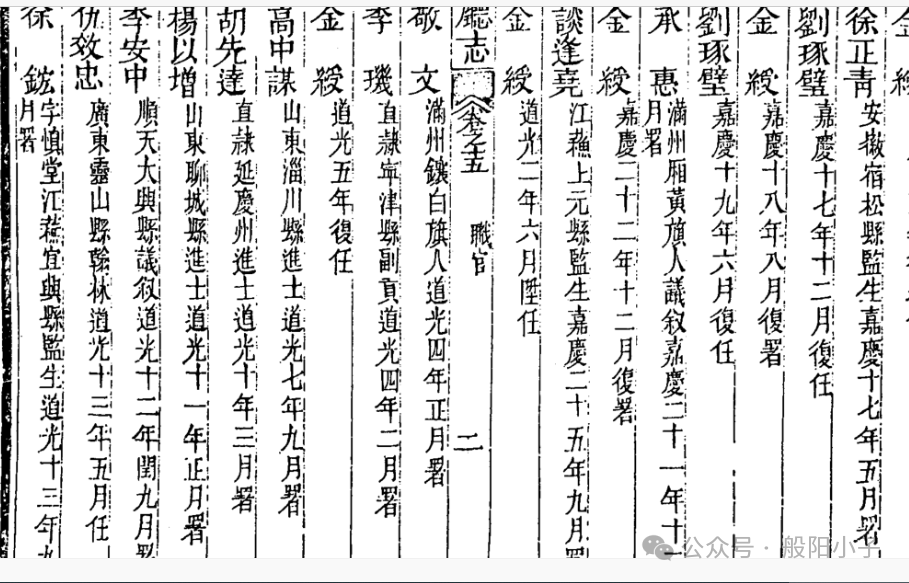 金綬
徐正青 安徽宿松縣監生嘉慶十七年五月署
劉琢璧 嘉慶十七年十二月復任
金綬 嘉慶十八年八月復署
劉琢璧 嘉慶十九年六月復任
承惠 滿州廂黃旗人議叙嘉慶二十一年十
月署
金綬 嘉慶二十二年十二月復署
談逢堯 江蘇上元縣監生嘉慶二十五年九月署
金綬 道光二年六月陞任
廳志 卷之五 職官 二
敬文 滿州鑲白旗人道光四年正月署
李璣 直隷寧津縣副貢道光四年二月署
金綬 道光五年復任
高中謀 山東淄川縣進士道光七年九月署
胡先達 直隷延慶州進士道光十年三月署
楊以增 山東聊城縣進士道光十一年正月署
李安中 順天大興縣議叙道光十二年閏九月署
仇效忠 廣東靈山縣翰林道光十三年五月任
徐鋐 字慎堂江蘇宜興縣監生道光十三年九
月署
公众号·般阳小子